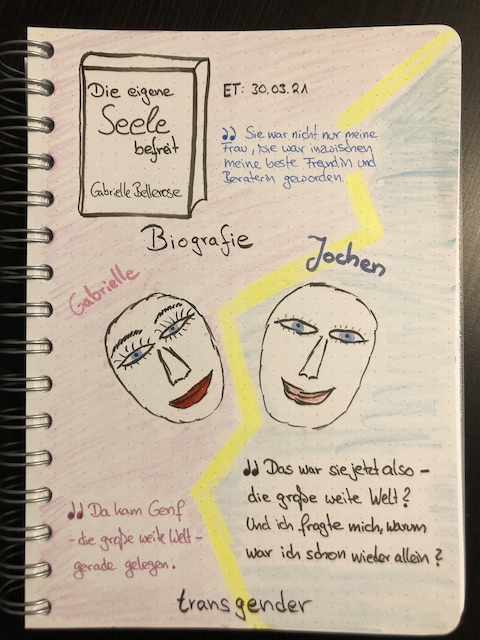 Die eigene
Seele
befreit
Gabrielle Bellerose
ET: 30.03.21
" Sie war nicht nur meine
Frau, sie war inzwischen
meine beste Freundin und
Beraterin geworden.
Biografie
Gabrielle
Jochen
" Da kam Genf
- die große weite Welt -
gerade gelegen.
" Das war sie jetzt also -
die große weite Welt?
Und ich fragte mich, warum
war ich schon wieder allein?
transgender